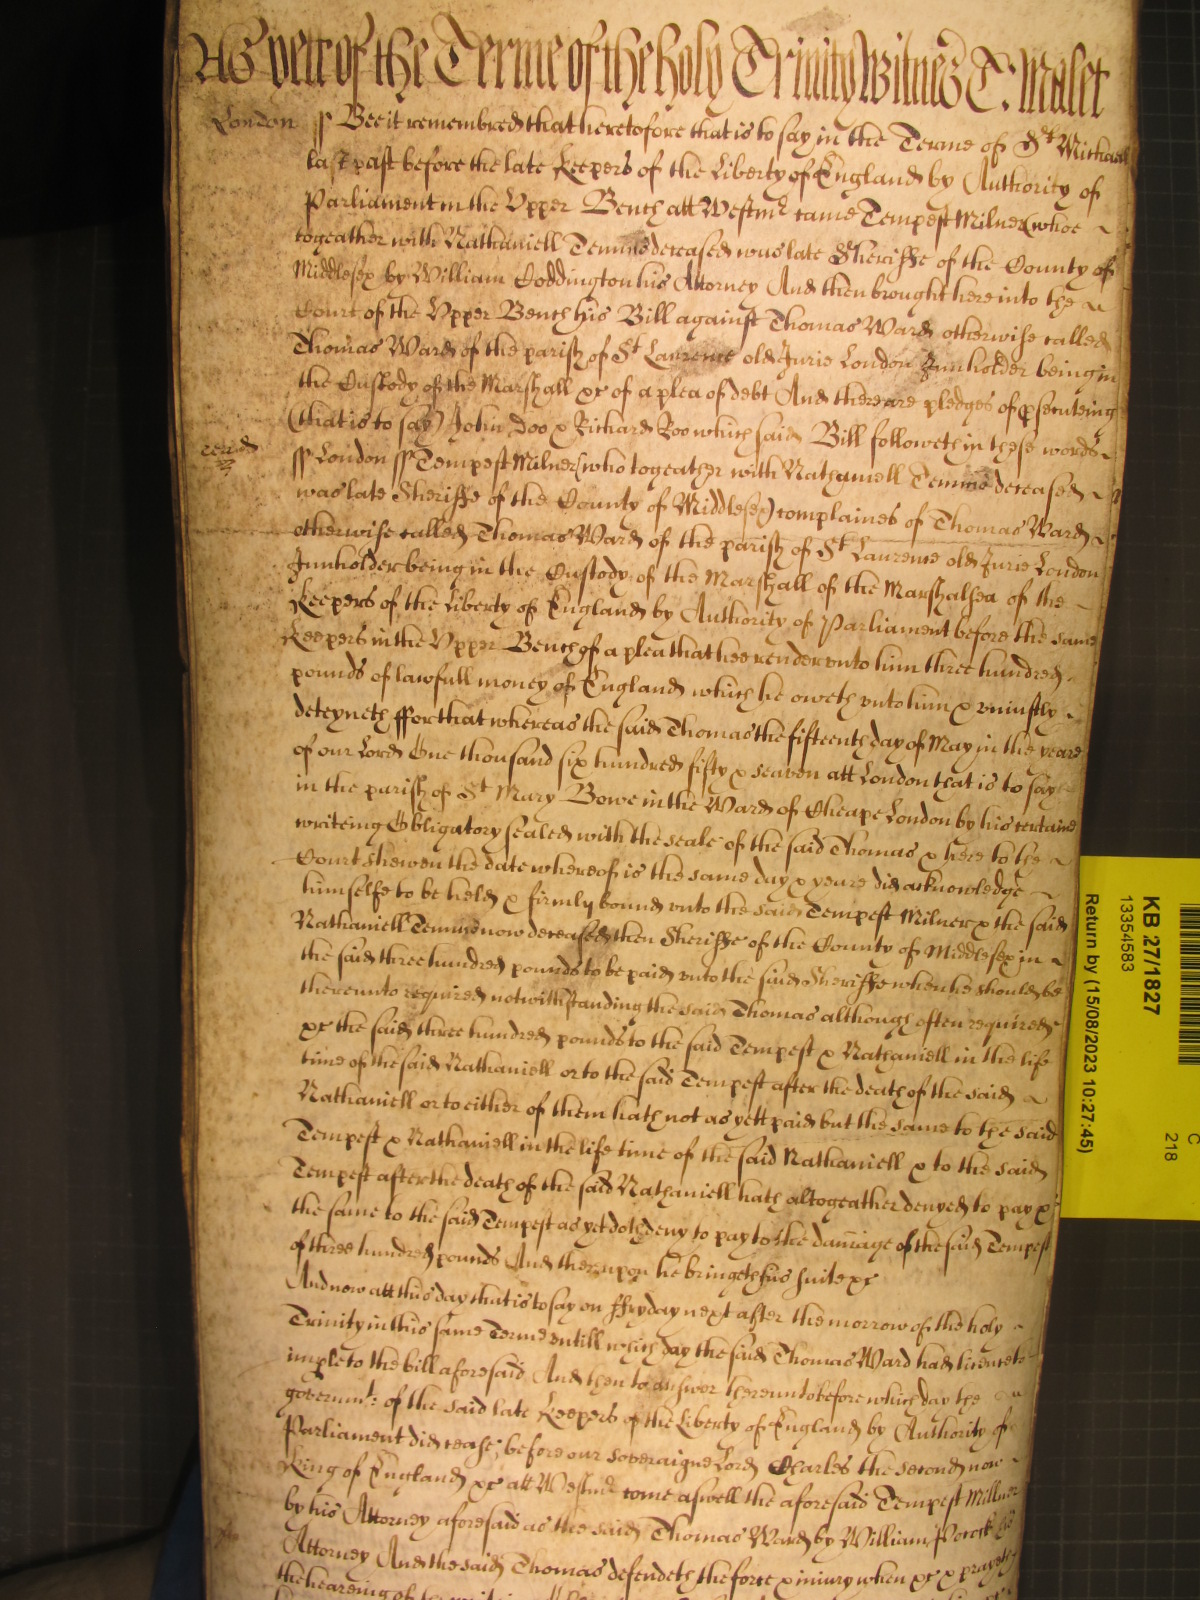 As yett of the Terme of the holy Trinity Witnes T: Malet
London ss Bee it remembred that heretofore that is to say in the Terme of St Michaell
last past before the late Keepers of the Liberty of England by Authority of
Parliament in the Upper Bench att Westmr came Tempest Milner (whoe
togeather with Nathaniell Temms deceased was late Sheriffe of the County of
Middlesex by William Coddington his Attorney And then brought here into the
Court of the Upper Bench his Bill against Thomas Ward otherwise called
Thomas Ward of the parish of St Laurence old Jurie London Innholder being in
the Custody of the Marshall xc of a plea of debt And there are pledges of psecuteing
(that is to say) John Doo & Richard Roo which said Bill followeth in these words
ss London ss Tempest Milner (who togeather with Nathaniell Temms deceased
was late Sheriffe of the County of Middlesex) complaines of Thomas Ward
otherwise called Thomas Ward of the parish of St Laurence old Jurie London
Innholder being in the Custody of the Marshall of the Marshalsea of the
Keepers of the Liberty of England by Authority of Parliament before the same
Keepers in the Upper Bench of a plea that hee render unto him three hundred
pounds of lawfull money of England which he oweth unto him & uniustly
deteyneth ffor that whereas the said Thomas the fifteenth day of May in the yeare
of our Lord One thousand six hundred fifty & seaven att London that is to say
in the parish of St Mary Bowe in the Ward of Cheape London by his certaine
writeing Obligatory sealed with the seale of the said Thomas & here to the
Court shewen the date whereof is the same day & yeare did acknowledge
himselfe to be held & firmly bound unto the said Tempest Milner & the said
Nathaniell Temms now deceased then Sheriffe of the County of Middlesex in
the said three hundred pounds to be paid unto the said Sheriffe when he should be
thereunto required notwithstanding the said Thomas although often required
xc the said three hundred pounds to the said Tempest & Nathaniell in the life
time of the said Nathaniell or to the said Tempest after the death of the said
Nathaniell or to either of them hath not as yett paid but the same to the said
Tempest & Nathaniell in the life time of the said Nathaniell & to the said
Tempest after the death of the said Nathaniell hath altogeather denyed to pay &
the same to the said Tempest as yet doth deny to pay to the damage of the said Tempest
of three hundred pounds And thereupon he bringeth his suite xc
And now att this day that is to say on ffryday next after the morrow of the holy
Trinity in this same Terme untill which day the said Thomas Ward had licence to
imple to the bill aforesaid And then to answer thereunto before which day the
governmt: of the said late Keepers of the Liberty of England by Authority of
Parliament did cease, before our Soveraigne Lord Charles the second now
King of England xc att Westmr come aswell the aforesaid Tempest Millner
by his Attorney aforesaid as the said Thomas Ward by William Pocock his
Attorney And the said Thomas defendeth the force & iniury when xc & prayeth
the heareing of
KB 27/1827
13354583
Return by (15/08/2023 10:27:45)
C
218